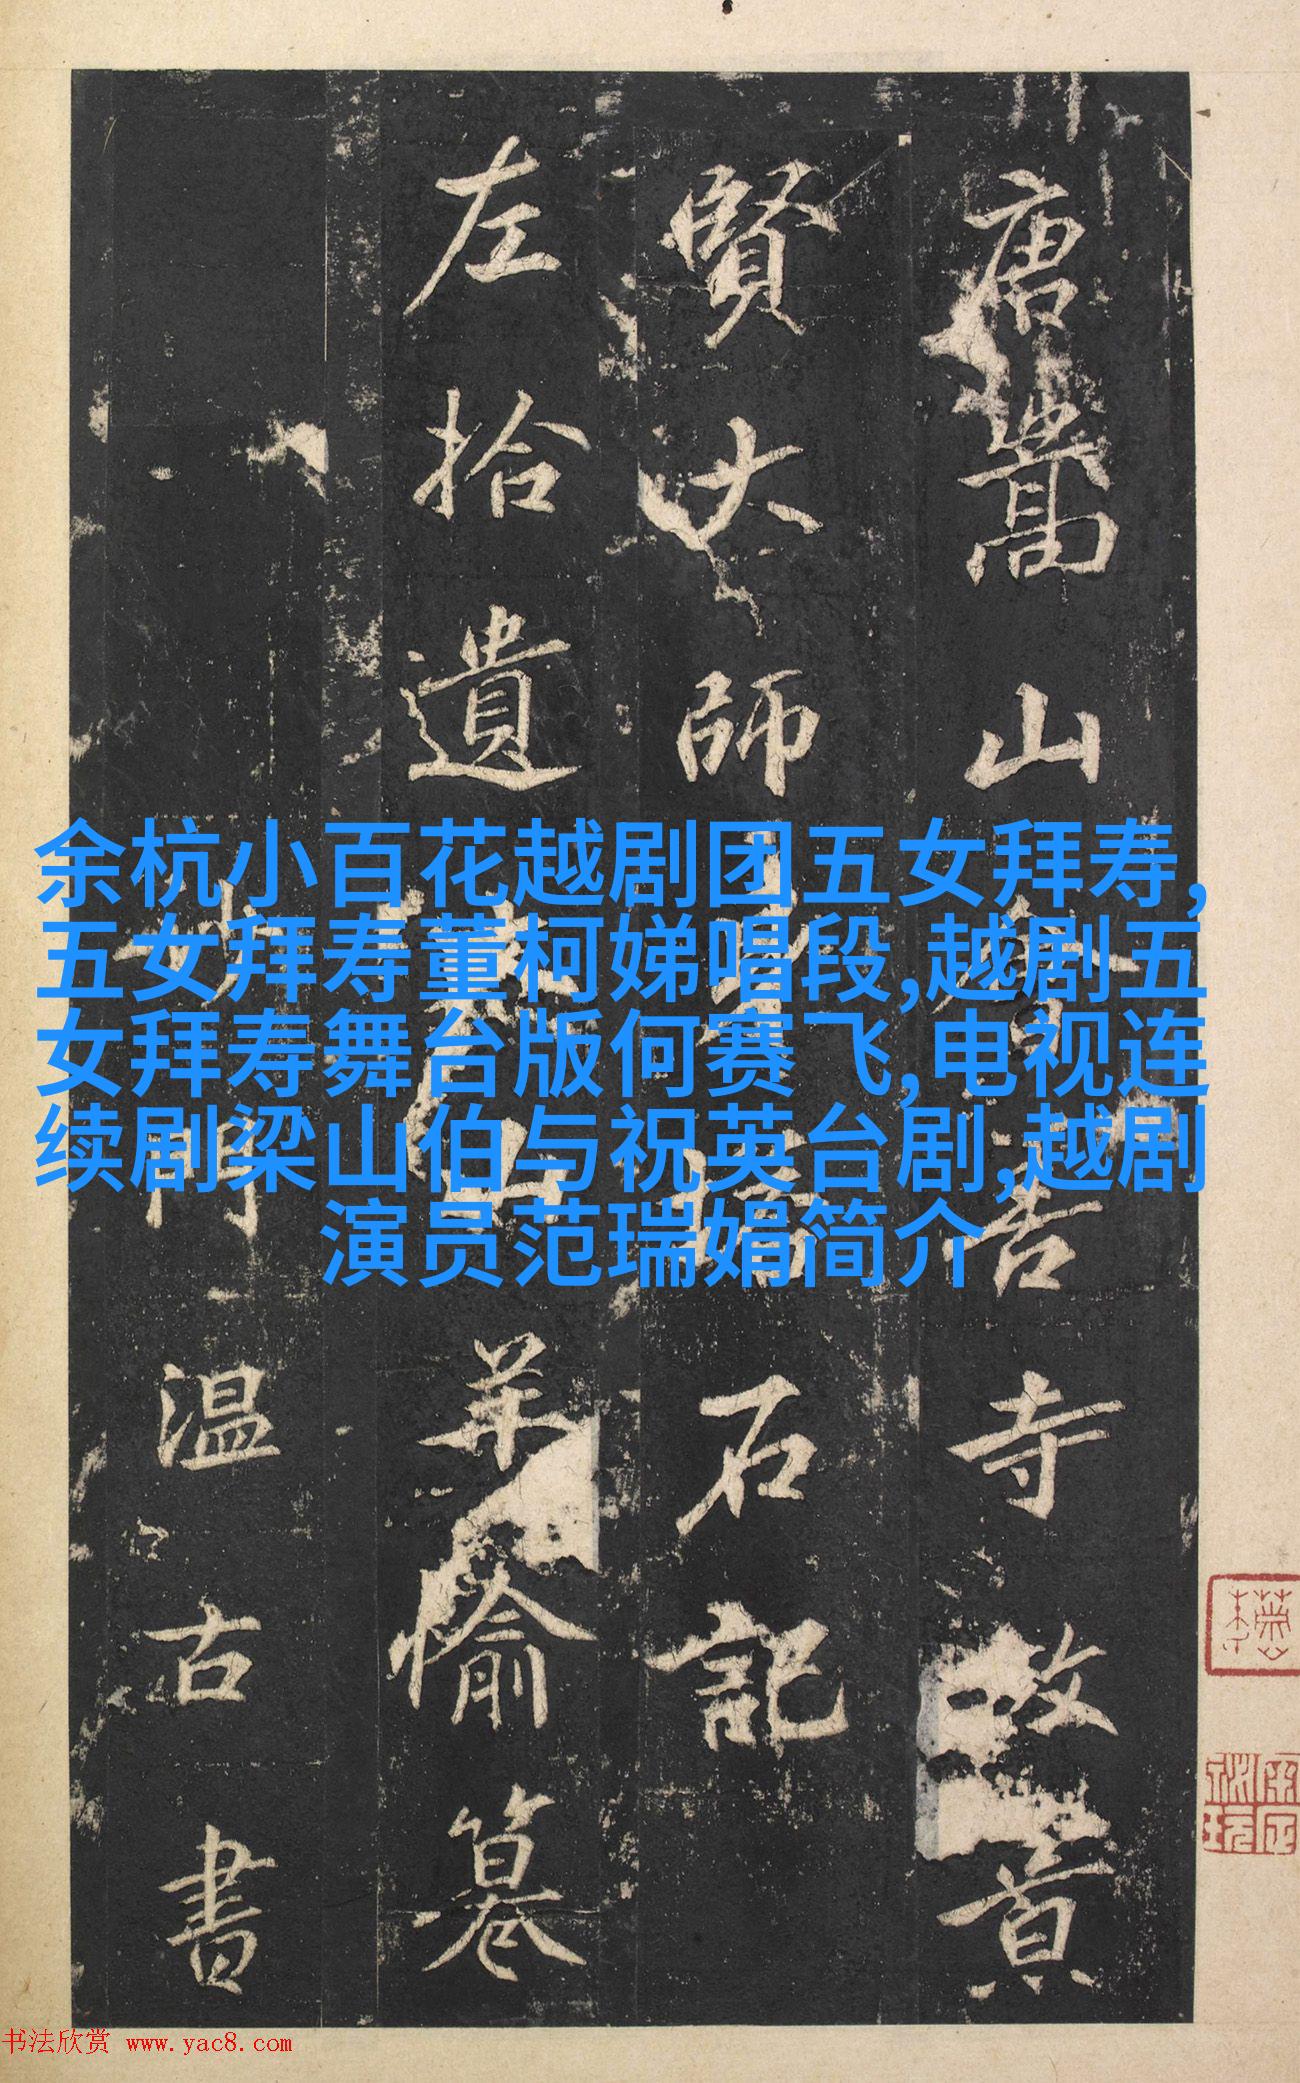 唐嵩山會善寺故景
賢大師身塔石記
左拾遺太山羊愉纂
沙門溫古書
余杭小百花越剧团五女拜寿,
五女拜寿董柯娣唱段,越剧五
女拜寿舞台版何赛飞,电视连
续剧梁山伯与祝英台剧,越剧
演员范瑞娟简介
书法欣赏 www.yac8.com